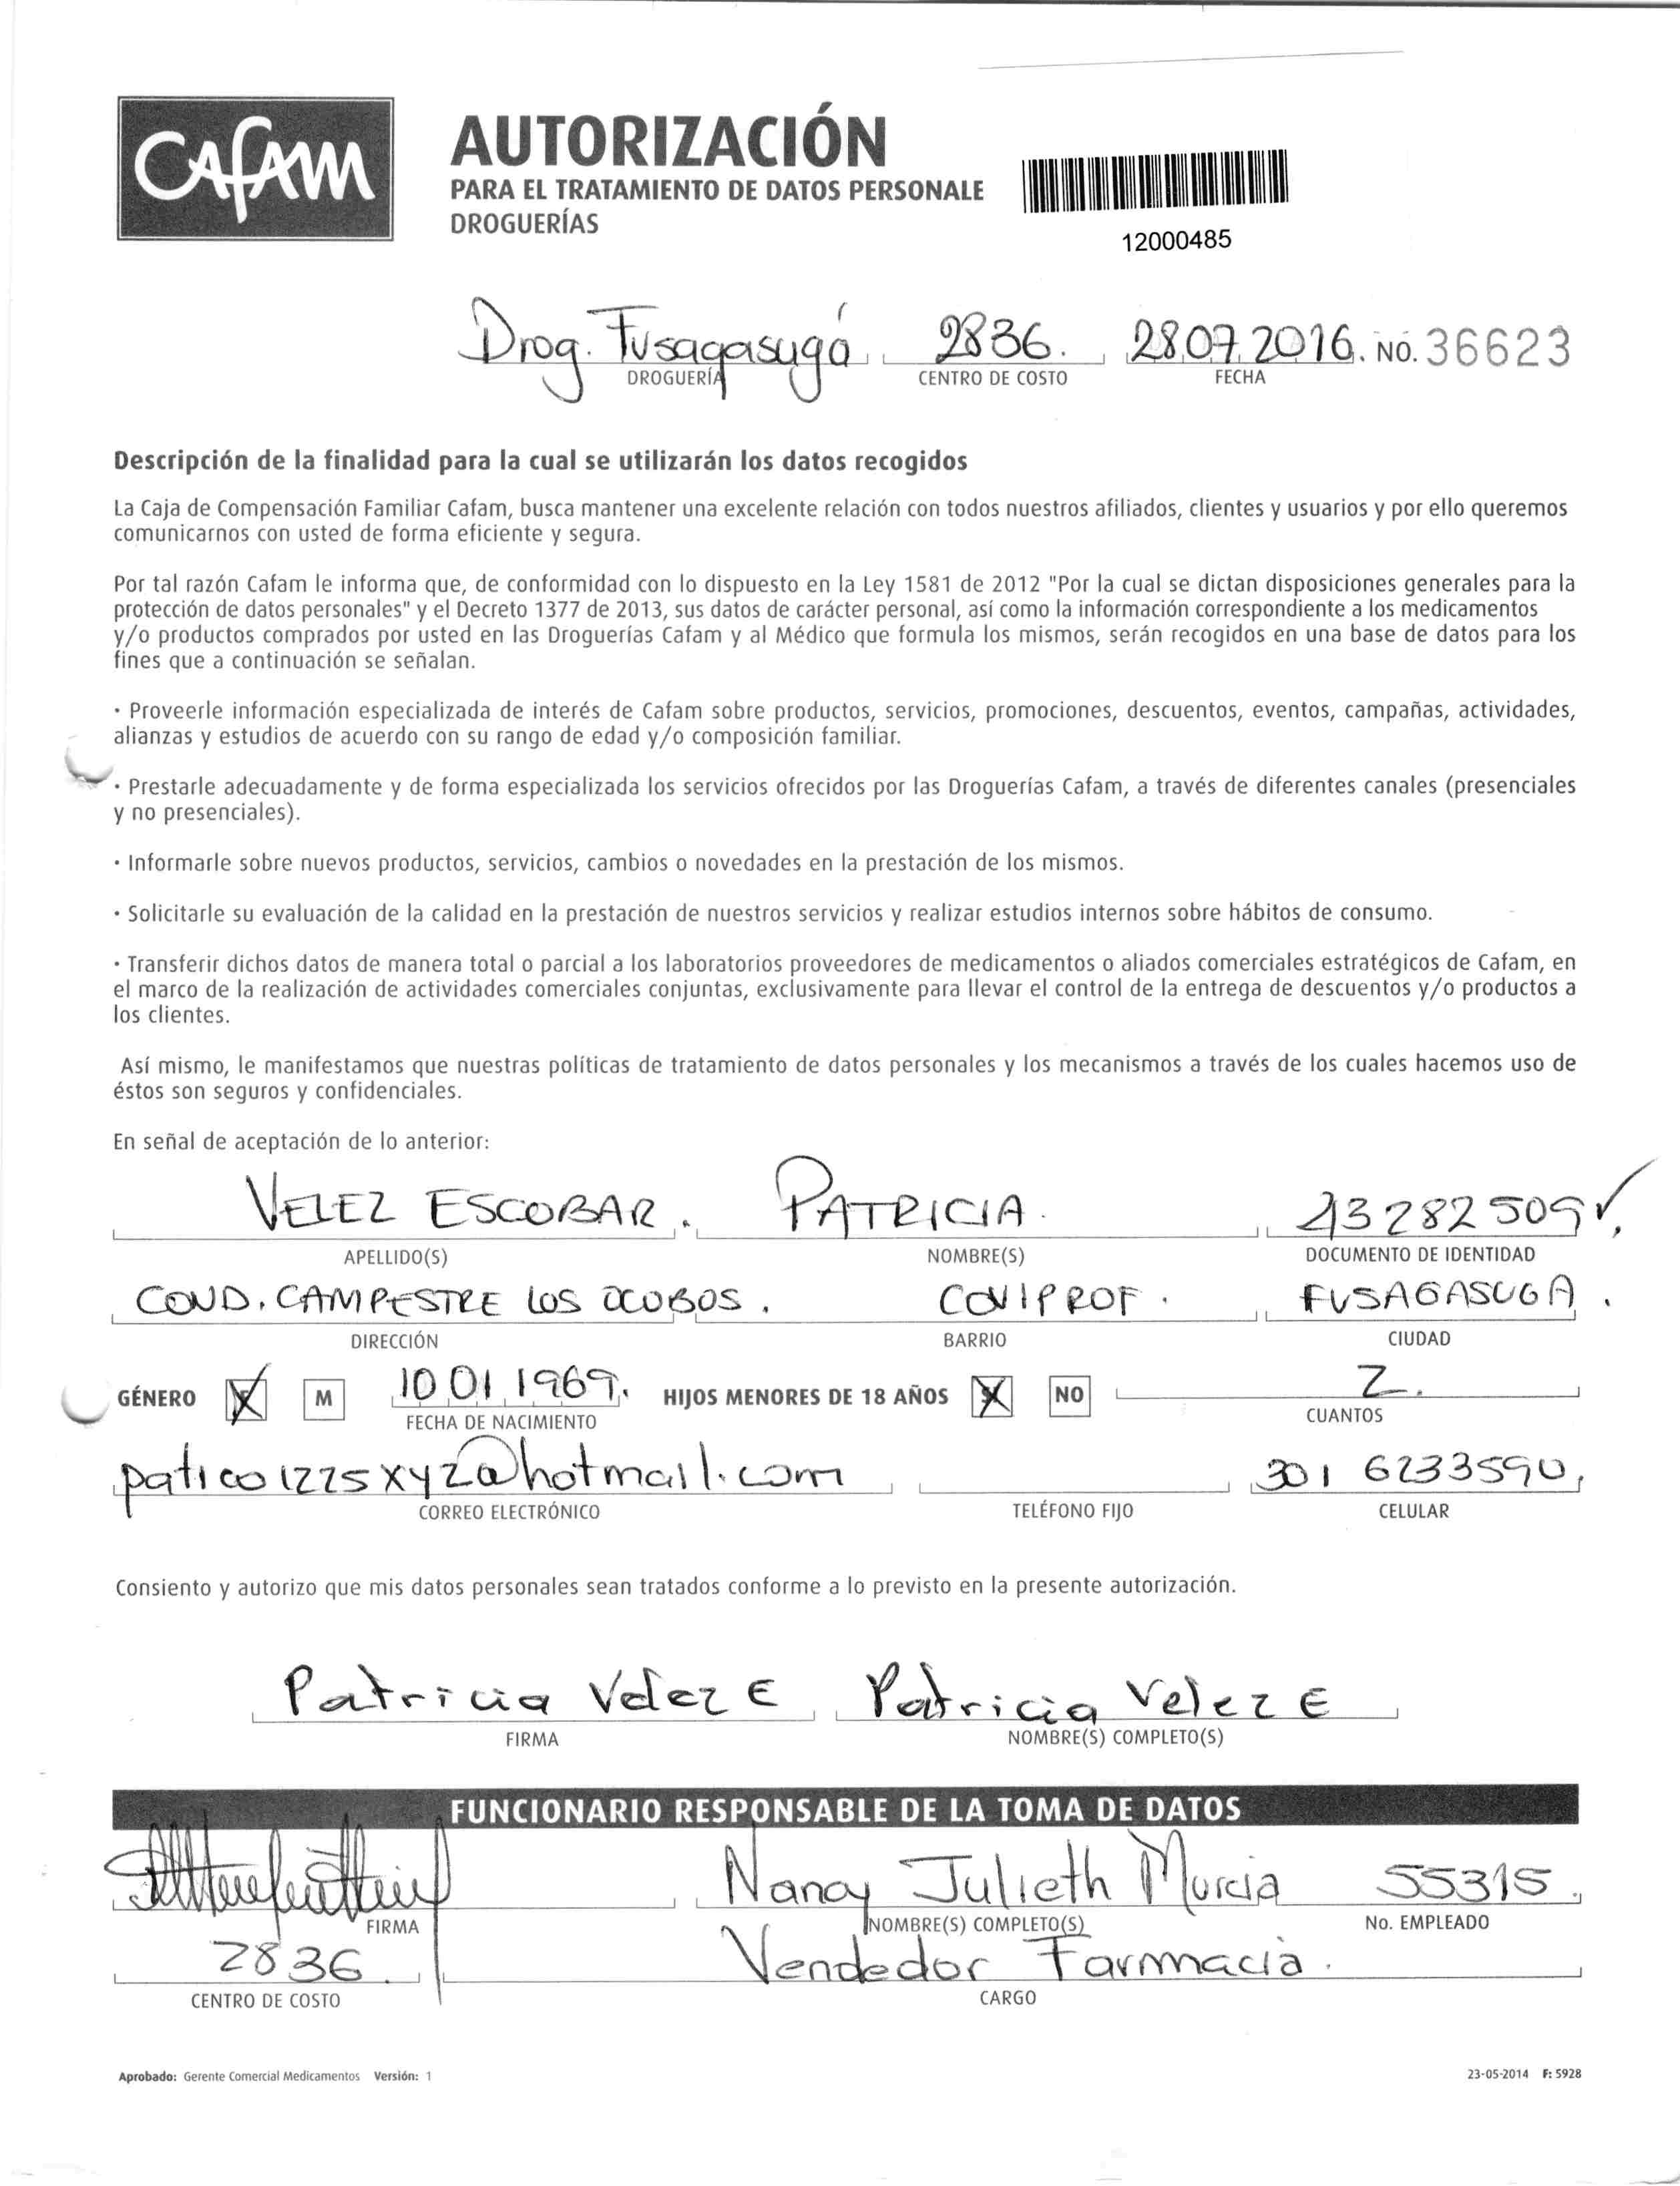 CAFAM
AUTORIZACIÓN
PARA EL TRATAMIENTO DE DATOS PERSONALE
DROGUERÍAS
12000485
Drog. Fusagasugá 2836. 28.07.2016. NO. 36623
DROGUERÍA CENTRO DE COSTO FECHA
Descripción de la finalidad para la cual se utilizarán los datos recogidos
La Caja de Compensación Familiar Cafam, busca mantener una excelente relación con todos nuestros afiliados, clientes y usuarios y por ello queremos
comunicarnos con usted de forma eficiente y segura.
Por tal razón Cafam le informa que, de conformidad con lo dispuesto en la Ley 1581 de 2012 "Por la cual se dictan disposiciones generales para la
protección de datos personales" y el Decreto 1377 de 2013, sus datos de carácter personal, así como la información correspondiente a los medicamentos
y/o productos comprados por usted en las Droguerías Cafam y al Médico que formula los mismos, serán recogidos en una base de datos para los
fines que a continuación se señalan.
· Proveerle información especializada de interés de Cafam sobre productos, servicios, promociones, descuentos, eventos, campañas, actividades,
alianzas y estudios de acuerdo con su rango de edad y/o composición familiar.
· Prestarle adecuadamente y de forma especializada los servicios ofrecidos por las Droguerías Cafam, a través de diferentes canales (presenciales
y no presenciales).
· Informarle sobre nuevos productos, servicios, cambios o novedades en la prestación de los mismos.
· Solicitarle su evaluación de la calidad en la prestación de nuestros servicios y realizar estudios internos sobre hábitos de consumo.
· Transferir dichos datos de manera total o parcial a los laboratorios proveedores de medicamentos o aliados comerciales estratégicos de Cafam, en
el marco de la realización de actividades comerciales conjuntas, exclusivamente para llevar el control de la entrega de descuentos y/o productos a
los clientes.
Así mismo, le manifestamos que nuestras políticas de tratamiento de datos personales y los mecanismos a través de los cuales hacemos uso de
éstos son seguros y confidenciales.
En señal de aceptación de lo anterior:
VELEZ ESCOBAR. PATRICIA.
APELLIDO(S) NOMBRE(S) DOCUMENTO DE IDENTIDAD
COND. CAMPESTRE LOS OCOBOS. COVIPROF. FUSAGASUGA.
DIRECCIÓN BARRIO CIUDAD
GÉNERO X M 10 01 1969. HIJOS MENORES DE 18 AÑOS X NO 2.
FECHA DE NACIMIENTO CUANTOS
patico1225xyz@hotmail.com 301 6233590.
CORREO ELECTRÓNICO TELÉFONO FIJO CELULAR
Consiento y autorizo que mis datos personales sean tratados conforme a lo previsto en la presente autorización.
Patricia Velez E Patricia Velez E
FIRMA NOMBRE(S) COMPLETO(S)
FUNCIONARIO RESPONSABLE DE LA TOMA DE DATOS
Nancy Julieth Murcia 55315.
FIRMA NOMBRE(S) COMPLETO(S) No. EMPLEADO
2836. Vendedor Farmacia.
CENTRO DE COSTO CARGO
Aprobado: Gerente Comercial Medicamentos Versión: 1 23-05-2014 F: 5928